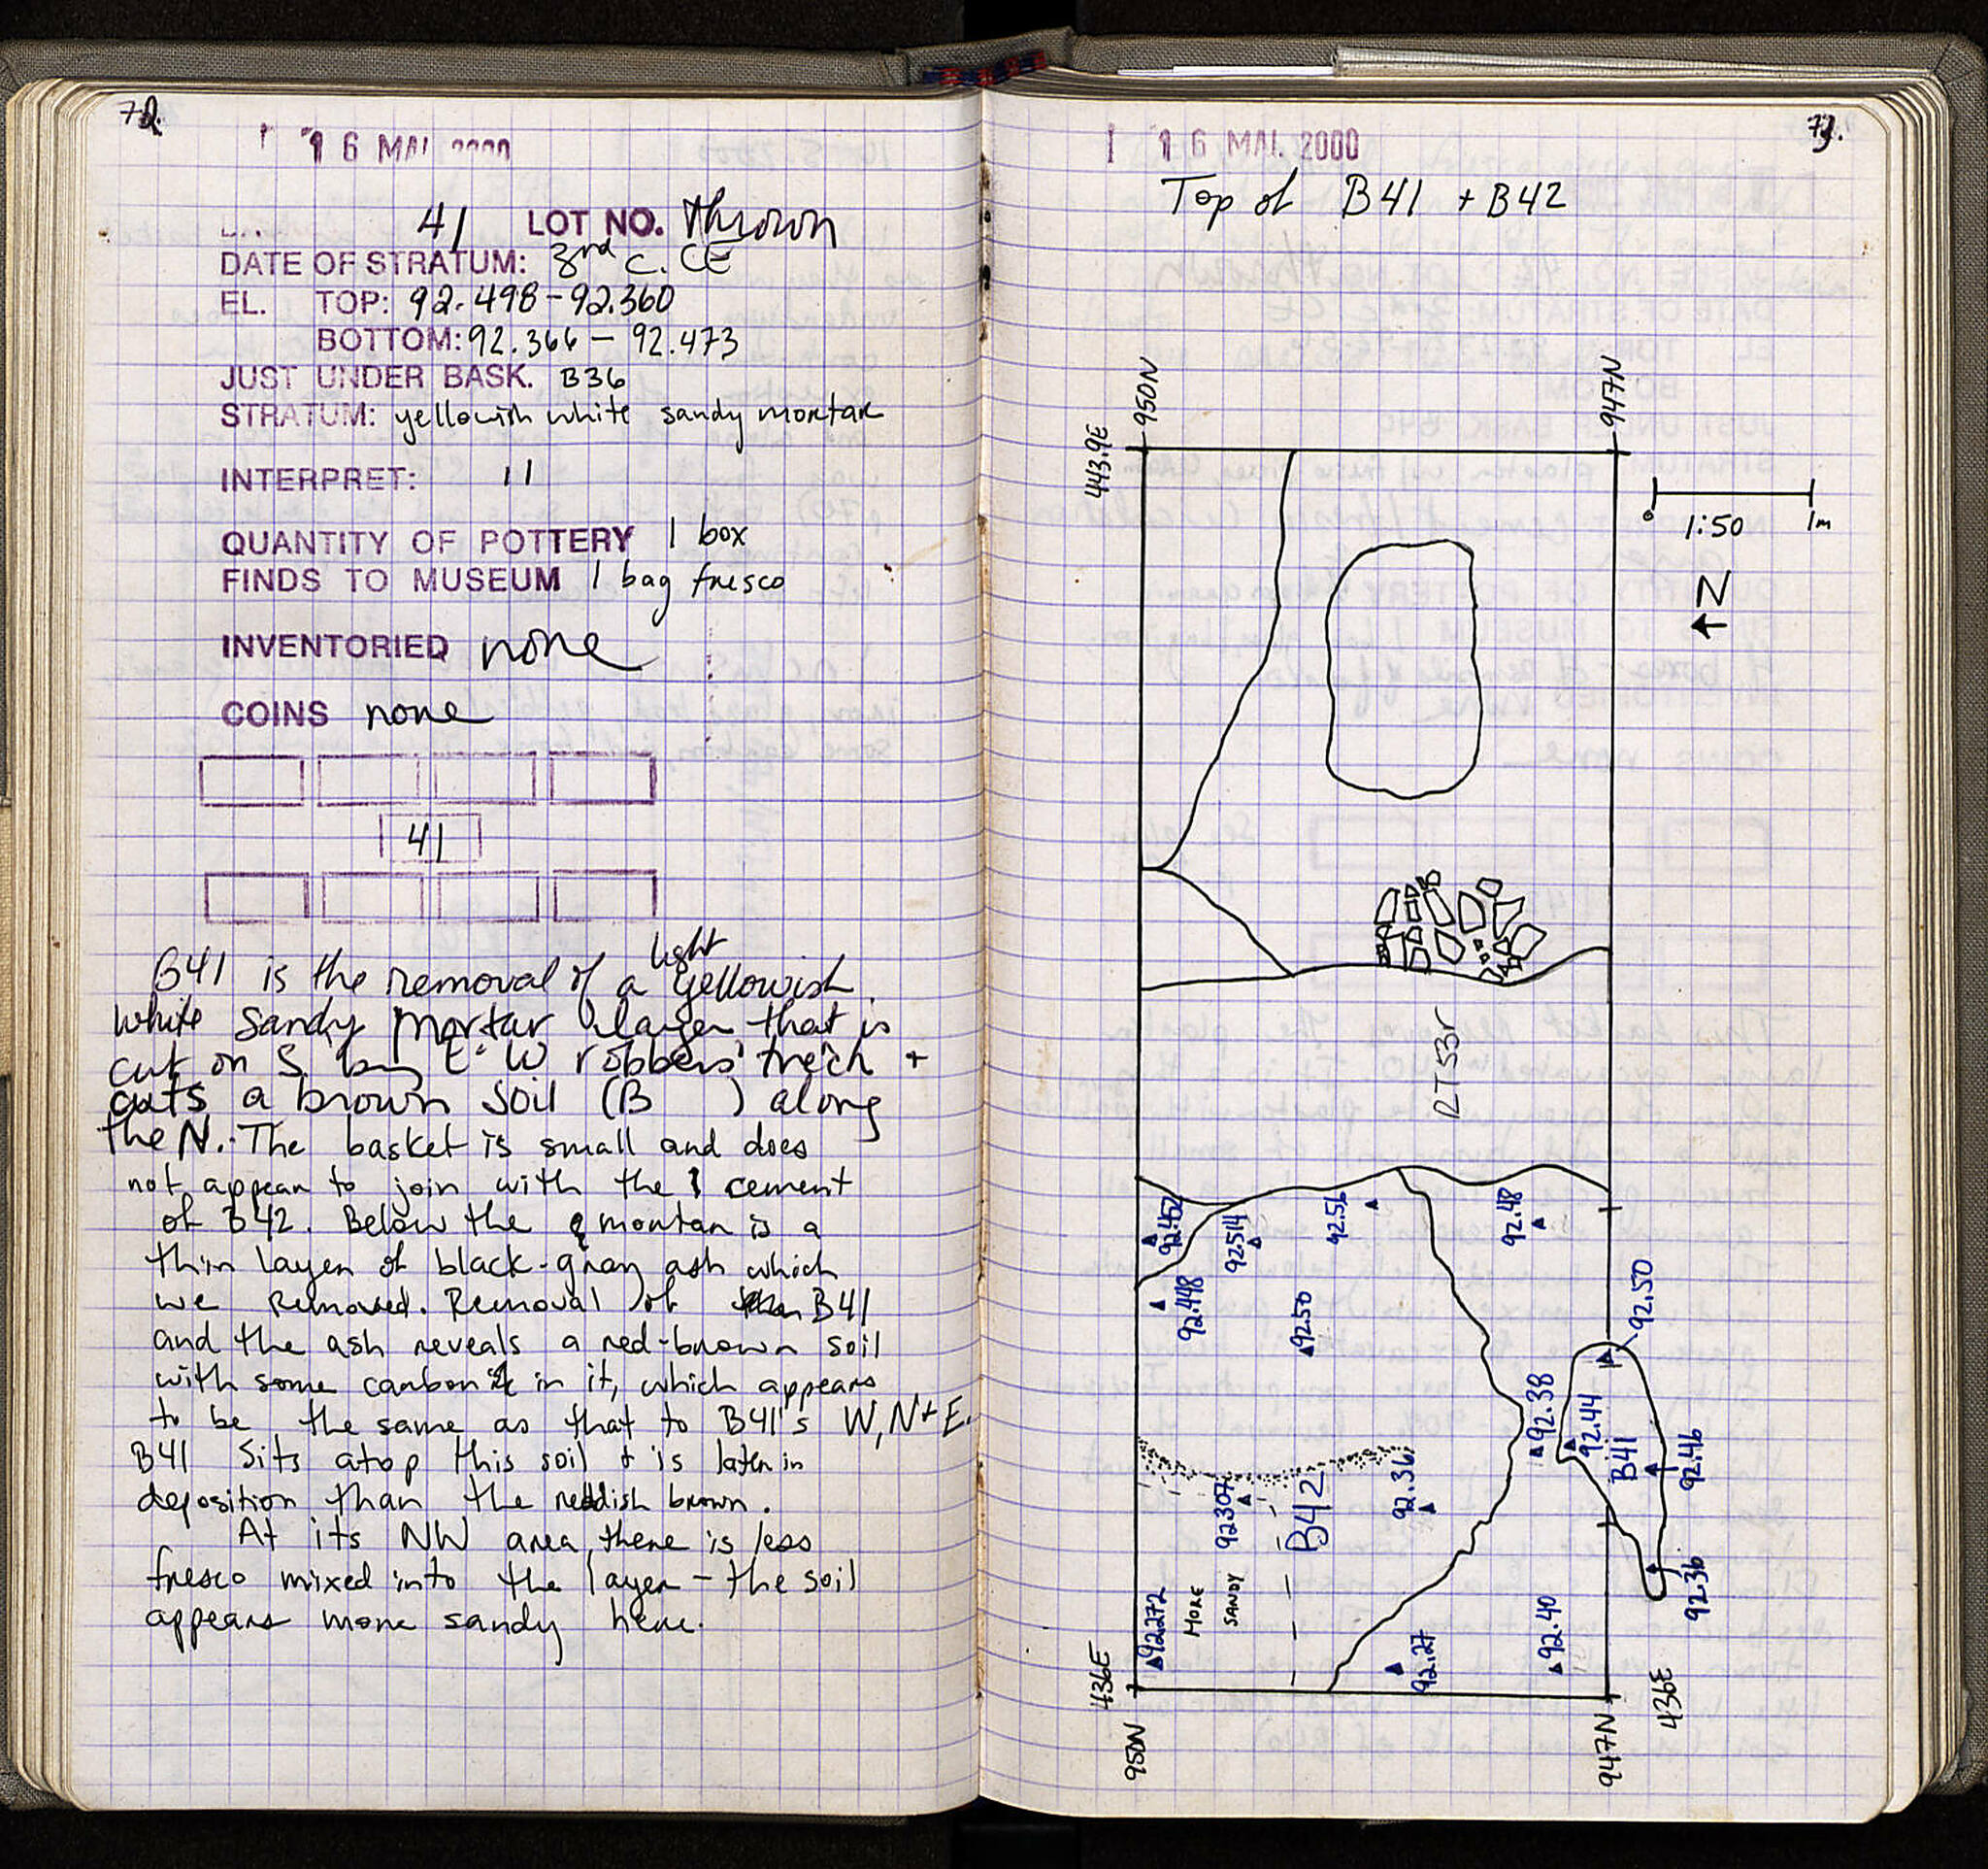 72.
16 MAI 2000
41 LOT NO. thrown
DATE OF STRATUM: 3rd c. CE
EL. TOP: 92.498-92.360
BOTTOM: 92.366 - 92.473
JUST UNDER BASK. B36
STRATUM: yellowish white sandy mortar
INTERPRET: 11
QUANTITY OF POTTERY 1 box
FINDS TO MUSEUM 1 bag fresco
INVENTORIED none
COINS none
41
B41 is the removal of a light yellowish
white sandy mortar layer that is
cut on S. by E-W robbers' trech +
cuts a brown soil (B ) along
the N. The basket is small and does
not appear to join with the cement
of B42. Below the mortar is a
thin layer of black-gray ash which
we removed. Removal of B41
and the ash reveals a red-brown soil
with some carbon in it, which appears
to be the same as that to B41's W, N + E.
B41 sits atop this soil + is later in
deposition than the reddish brown.
At its NW area, there is less
fresco mixed into the layer - the soil
appears more sandy here.
73.
16 MAI. 2000
Top of B41 + B42
950N
947N
443.9E
0 1m
1:50
N
RT53r
92.452
92.514
92.56
92.48
92.498
92.50
92.50
92.38
92.44
B41
92.46
92.307
B42
92.36
92.36
MORE
SANDY
92.272
92.27
92.40
436E
436E
950N
947N